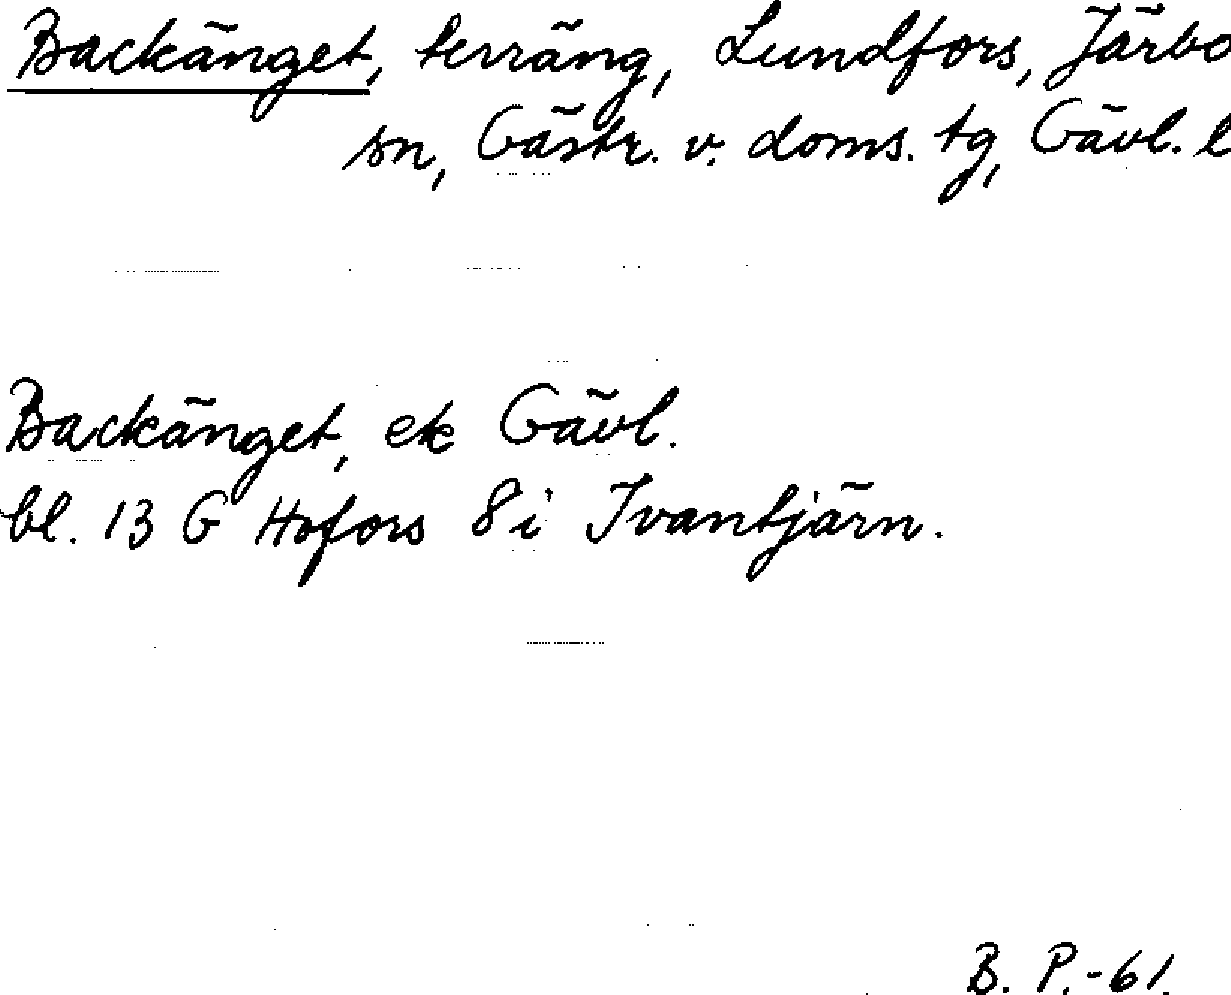 Backänget, terräng, Lundfors, Järbo
sn, Gästr. v. doms. tg, Gävl. l
Backänget, ek Gävl.
bl. 13 G Hofors 8 i Ivantjärn.
B. P.-61.